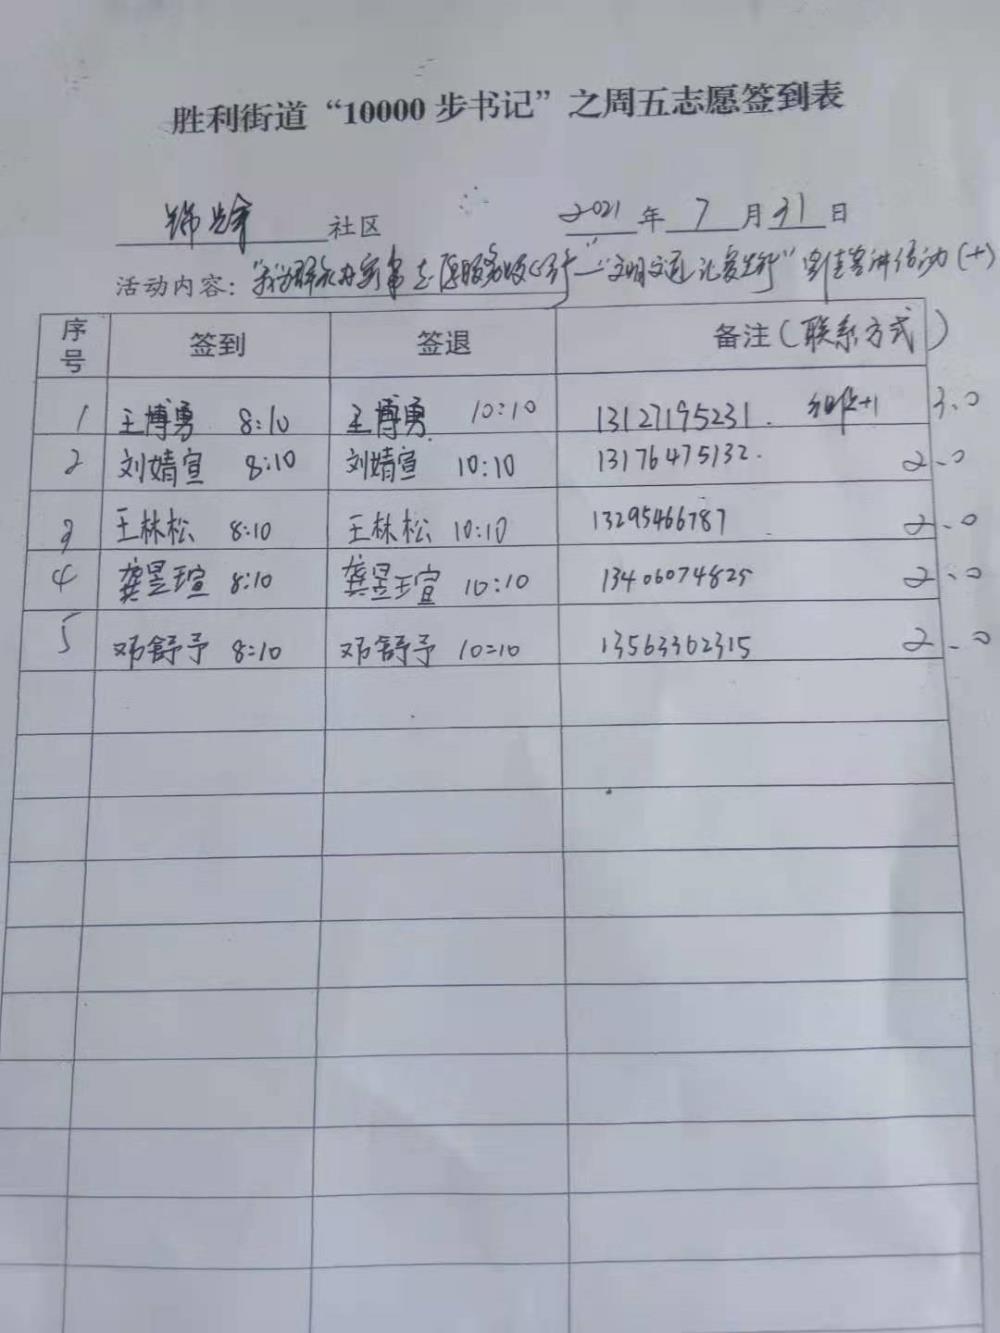 胜利街道“10000步书记”之周五志愿签到表
社区 2021年7月31日
活动内容:“我为群众办实事 志愿服务暖心行—“文明文通 礼爱出行” 宣讲活动(十)
序号 签到 签退 备注(联系方式)
1 王博勇 8:10 王博勇 10:10 13127195231. 组织+1 3.0
2 刘婧宣 8:10 刘婧宣 10:10 13176475132. 2.0
3 王林松 8:10 王林松 10:10 13295466787 2.0
4 龚昱瑄 8:10 龚昱瑄 10:10 13406074825 2.0
5 邓舒予 8:10 邓舒予 10:10 13563362315 2.0